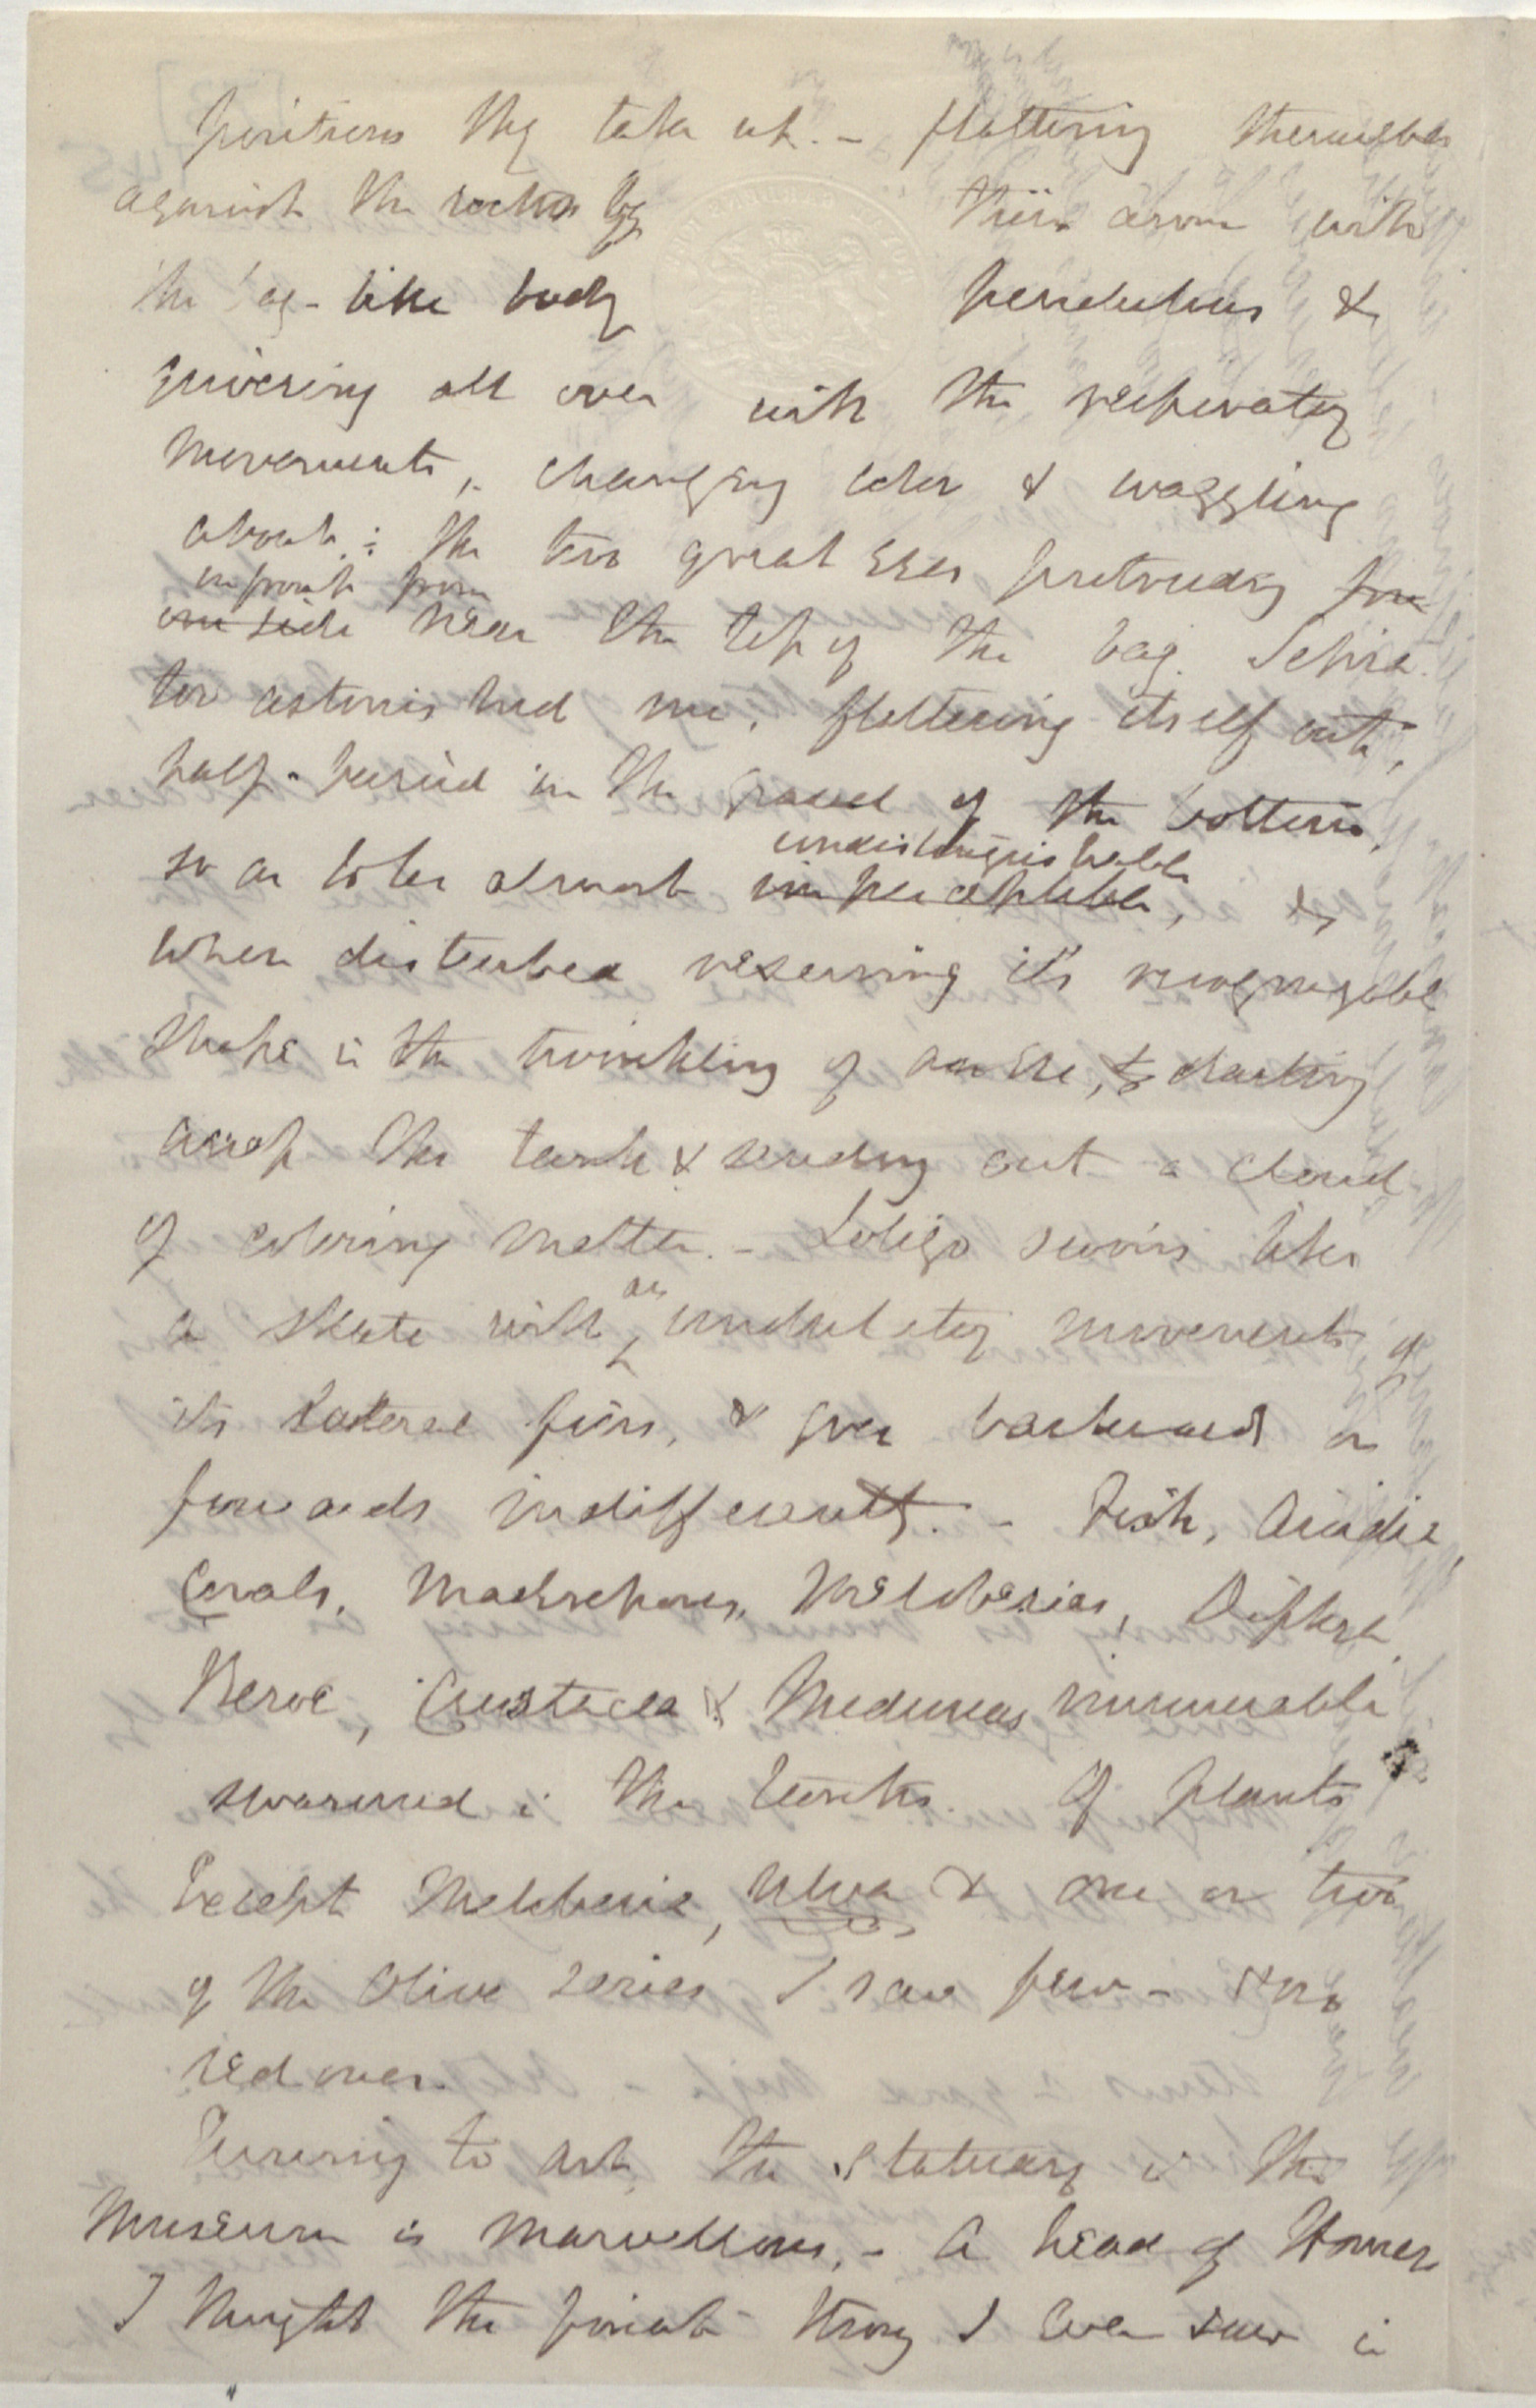 positions they take up. – flattening themselves
against the rocks by their arms with
the bag-like body pendulous &
quivering all over with the respiratory
movements, changing color & waggling
about; the two great eyes protruding from
in front from
one side near the top of the bag. Sepia
too astonished me, flattening itself out,
half-buried in the gravel of the bottom,
undistinguishable
so as to be almost imperceptible, &
when disturbed resuming its recognizable
shape in the twinkling of an eye, & darting
across the tank & sending out a cloud
of coloring matter. – Loligo swims like
an
a skate with undulatory movements of
its lateral fins, & goes backwards or
forwards indifferently. – Fish,
Corals, Madrepores, Melobesias,
Beroe, Crustacea & Medusas innumerable
swarmed in the tanks. Of plants
Except Melobesia, Ulva & one or two
of the Olive series I saw few – & no
red ones.
Turning to Art, the statuary in the
Museum is marvellous, – A head of Homer
I thought the finest thing I ever saw in